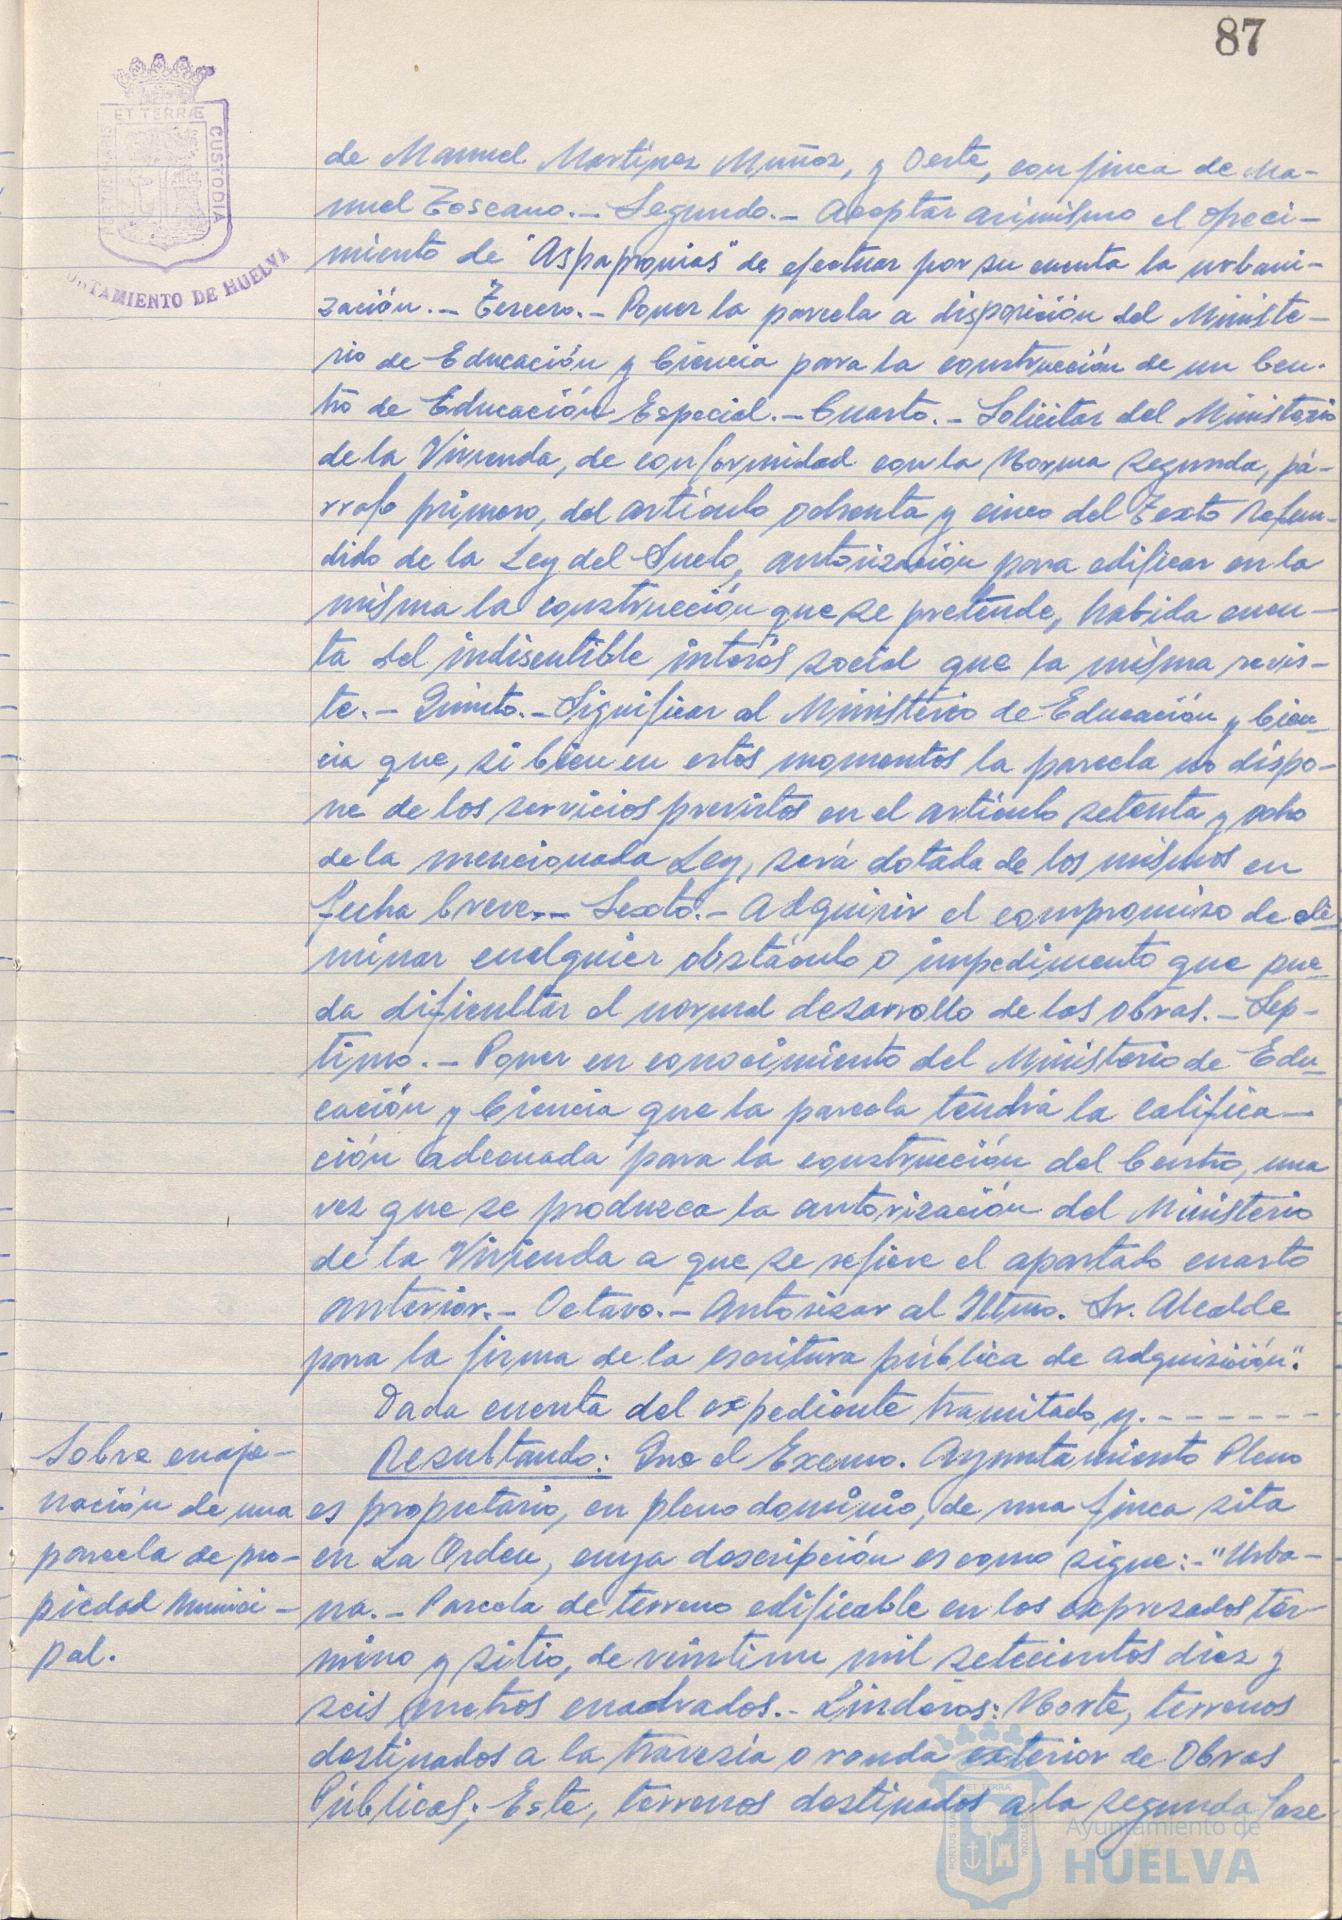 87
ET TERRÆ
CUSTODIA
PORTUS MARIS
AYUNTAMIENTO DE HUELVA
de Manuel Martínez Muñoz, y Oeste, con finca de Ma-
nuel Toscano.- Segundo.- Aceptar asimismo el ofreci-
miento de "Aspapronias" de efectuar por su cuenta la urbani-
zación.- Tercero.- Poner la parcela a disposición del Ministe-
rio de Educación y Ciencia para la construcción de un Cen-
tro de Educación Especial.- Cuarto.- Solicitar del Ministerio
de la Vivienda, de conformidad con la Norma segunda, pá-
rrafo primero, del artículo ochenta y cinco del Texto Refun-
dido de la Ley del Suelo, autorización para edificar en la
misma la construcción que se pretende, habida cuen-
ta del indiscutible interés social que la misma revis-
te.- Quinto.- Significar al Ministerio de Educación y Cien-
cia que, si bien en estos momentos la parcela no dispo-
ne de los servicios previstos en el artículo setenta y ocho
de la mencionada Ley, será dotada de los mismos en
fecha breve.- Sexto.- Adquirir el compromiso de eli-
minar cualquier obstáculo o impedimento que pue-
da dificultar el normal desarrollo de las obras.- Sép-
timo.- Poner en conocimiento del Ministerio de Edu-
cación y Ciencia que la parcela tendrá la califica-
ción adecuada para la construcción del Centro, una
vez que se produzca la autorización del Ministerio
de la Vivienda a que se refiere el apartado cuarto
anterior.- Octavo.- Autorizar al Iltmo. Sr. Alcalde
para la firma de la escritura pública de adquisición".
Dada cuenta del expediente tramitado, y.- - - - - - -
Sobre enaje-
nación de una
parcela de pro-
piedad Munici-
pal.
Resultando: Que el Excmo. Ayuntamiento Pleno
es propietario, en pleno dominio, de una finca sita
en La Orden, cuya descripción es como sigue:- "Urba-
na.- Parcela de terreno edificable en los expresados tér-
mino y sitio, de veintiun mil setecientos diez y
seis metros cuadrados.- Linderos: Norte, terrenos
destinados a la travesía o ronda exterior de Obras
Públicas; Este, terrenos destinados a la segunda fase
ET TERRÆ
PORTUS MARIS
CUSTODIA
Ayuntamiento de
HUELVA